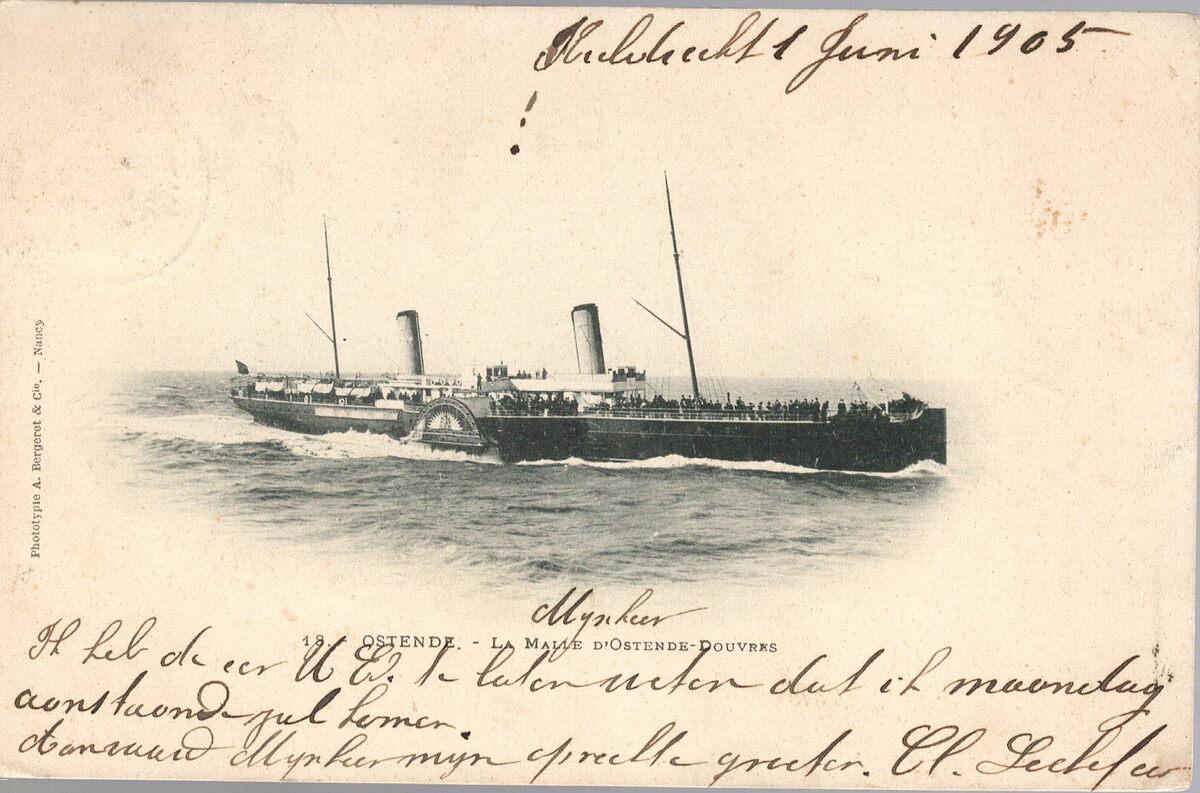 1 Juni 1905
!
Phototypie A. Bergeret & Cie. — Nancy
Mynheer
18. OSTENDE. - LA MALLE D'OSTENDE-DOUVRES
Ik heb de eer U Ed. te laten weten dat ik maandag
aanstaande zal komen.
Aanvaard Mynheer myn oprechte groeten. Cl.